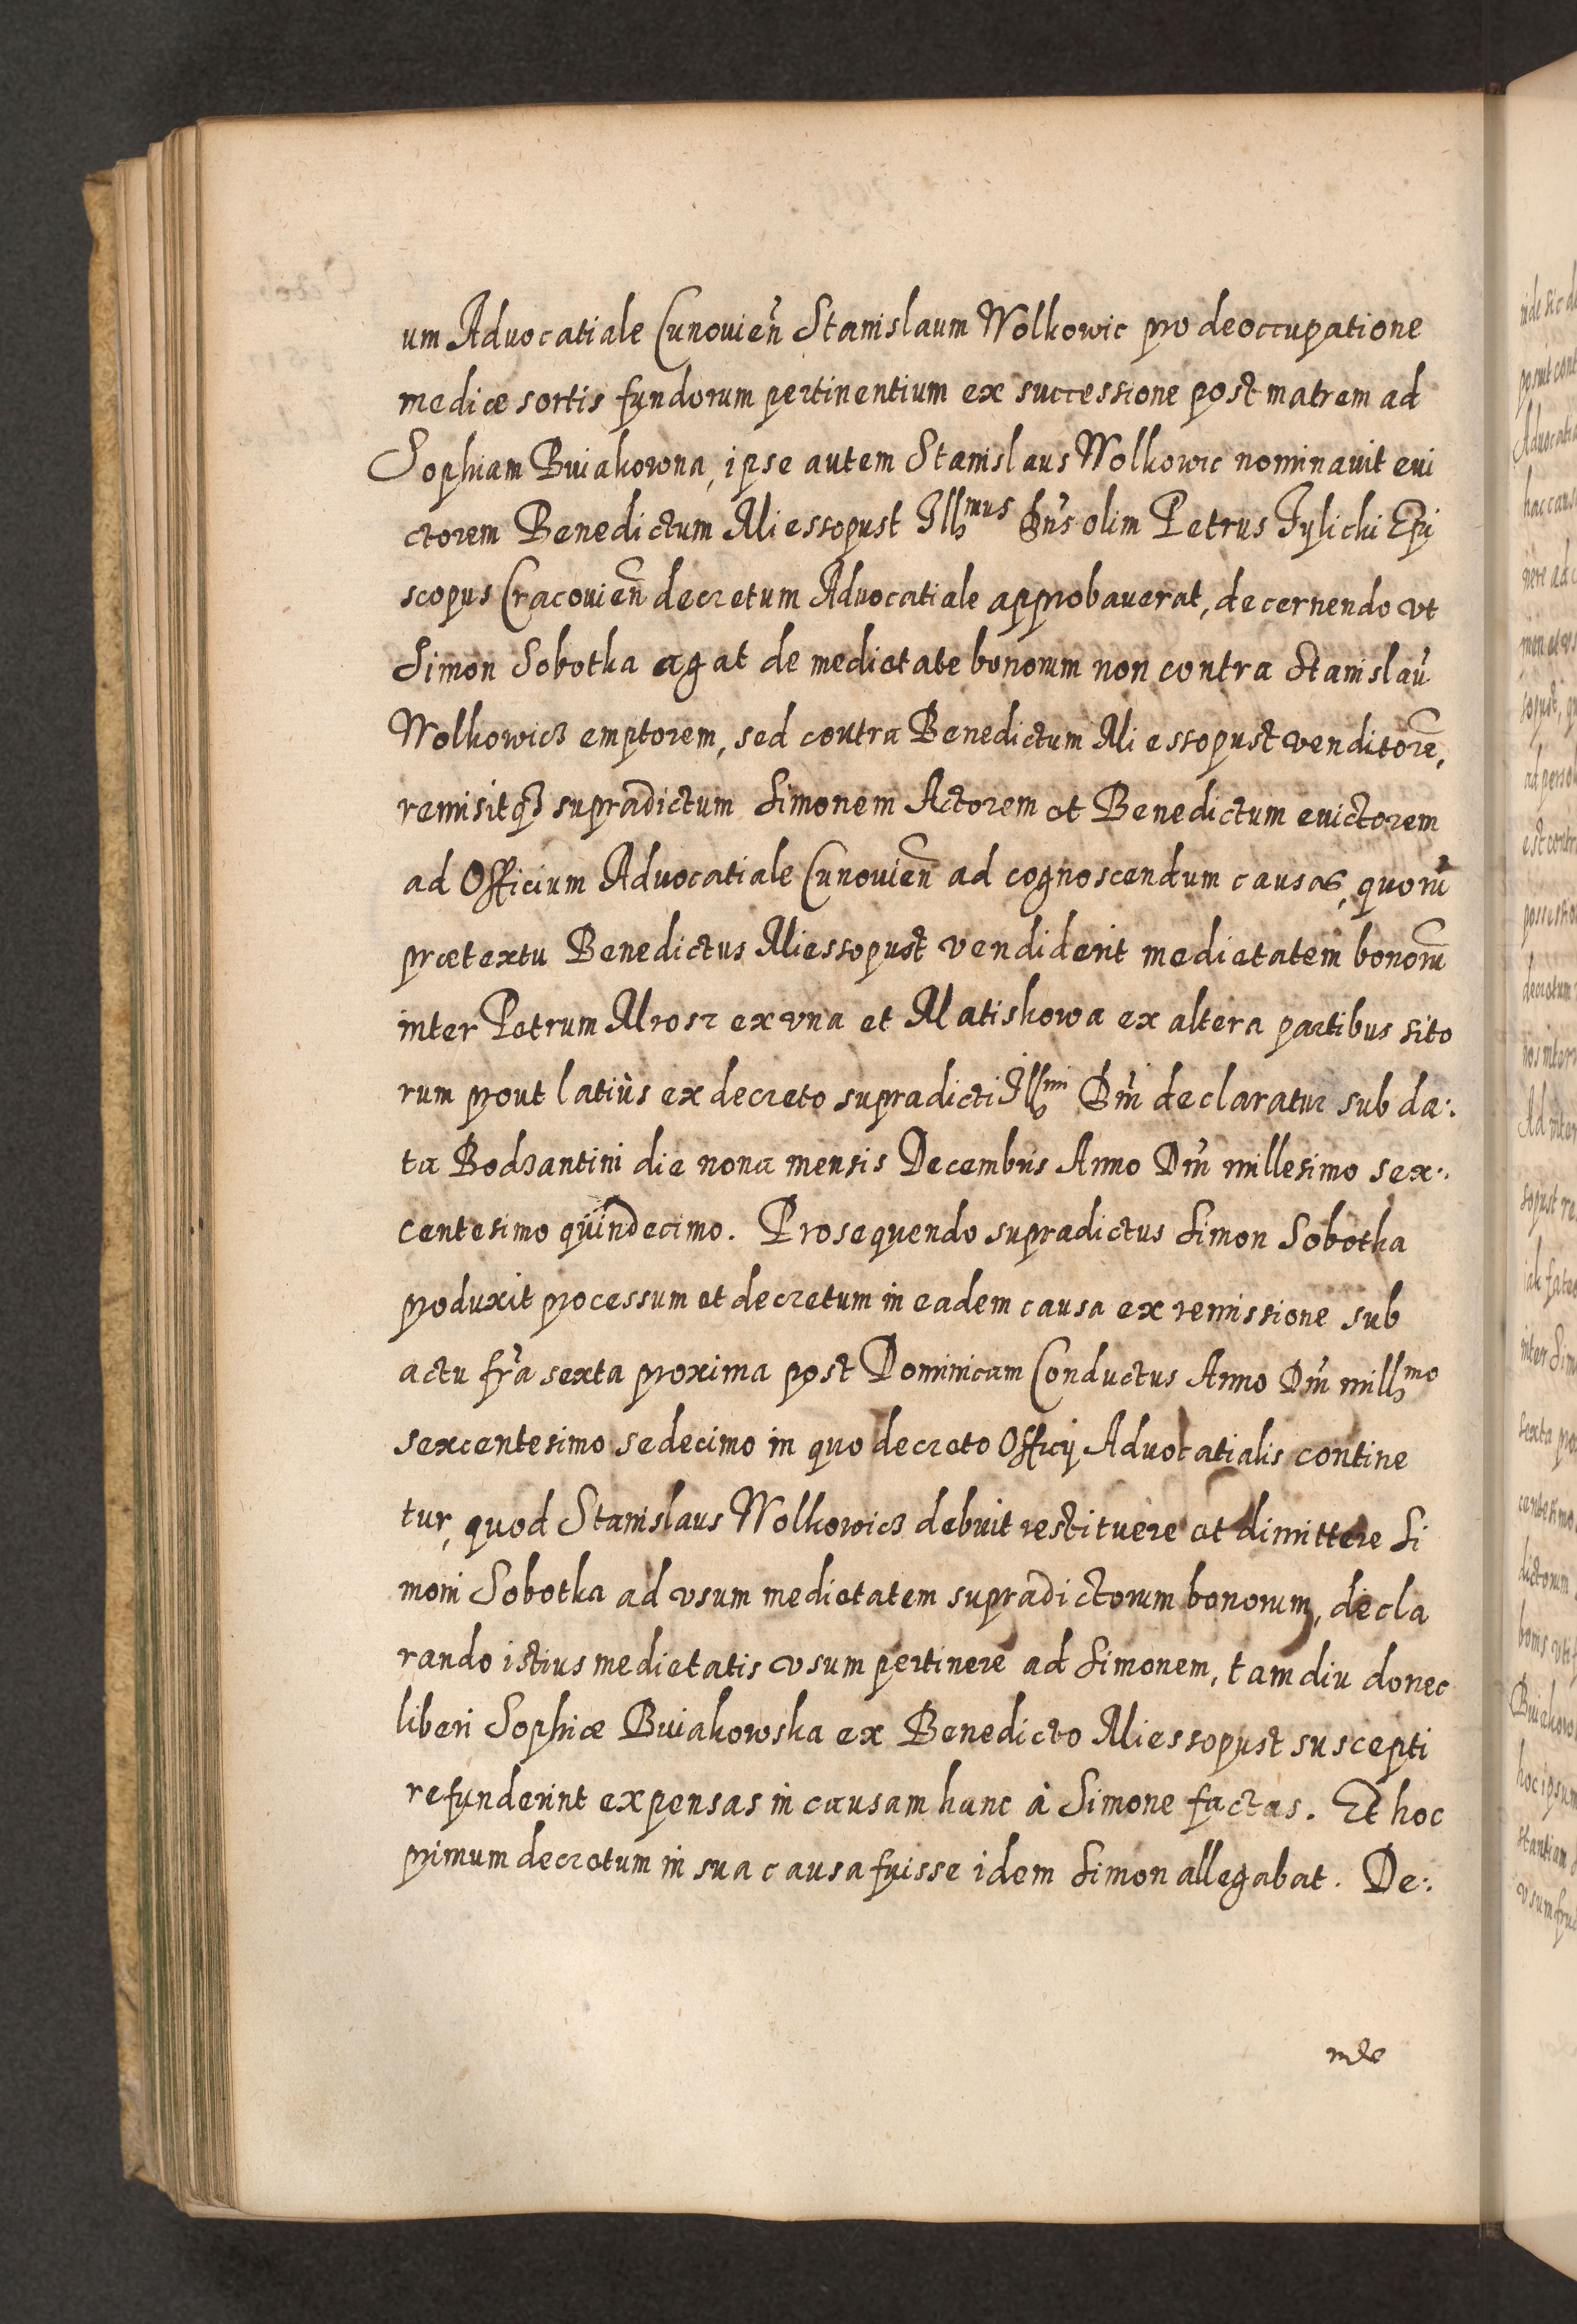 um Advocatiale Cunovien̄ Stanislaum Wolkowic pro deoccupatione
mediæ sortis fundorum pertinentium ex successione post matrem ad
Sophiam Buiakowna, ipse autem Stanislaus Wolkowic nominauit eui
ctorem Benedictum Miessopust Illmus Dn̄s olim Petrus Tylicki Epi
scopus Cracovien̄ decretum Advocatiale approbaverat, decernendo vt
Simon Sobotka agat de medietate bonorum non contra Stanislau̅
Wolkowicz emptorem, sed contra Benedictum Miessopust venditore̅,
remisitq₃ supradictum Simonem Actorem et Benedictum euictorem
ad Officium Advocatiale Cunovien̄ ad cognoscendum causas, quoru̅
prætextu Benedictus Miessopust vendiderit medietatem bonoru̅
inter Petrum Mrosz ex vna et Matiskowa ex altera partibus sito
rum prout latiùs ex decreto supradicti Illmi Dn̄i declaratur sub da:
ta Bodzantini die nona mensis Decembris Anno Dn̄i millesimo sex:
centesimo quindecimo. Prosequendo supradictus Simon Sobotka
produxit processum et decretum in eadem causa ex remissione sub
actu fr̄a sexta proxima post Dominicam Conductus Anno Dn̄i millmo
sexcentesimo sedecimo in quo decreto Officij Advocatialis contine
tur, quod Stanislaus Wolkowicz debuit restituere et dimittere Si
moni Sobotka ad vsum medietatem supradictorum bonorum, decla
rando istius medietatis vsum pertinere ad Simonem, tam diu donec
liberi Sophiæ Buiakowska ex Benedicto Miessopust suscepti
refunderint expensas in causam hanc à Simone factas. Et hoc
primum decretum in sua causa fuisse idem Simon allegabat. De:
inde